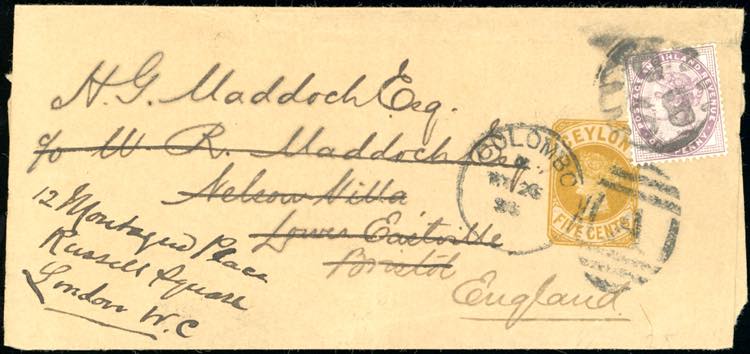 H. G. Maddoch Esq.
c/o W. R. Maddoch Esq.,
Nelson Villa
Lower Eastville
Bristol
England.
12 Montague Place
Russell Square
London W.C
COLOMBO
CEYLON
FIVE CENTS
POSTAGE AND INLAND REVENUE